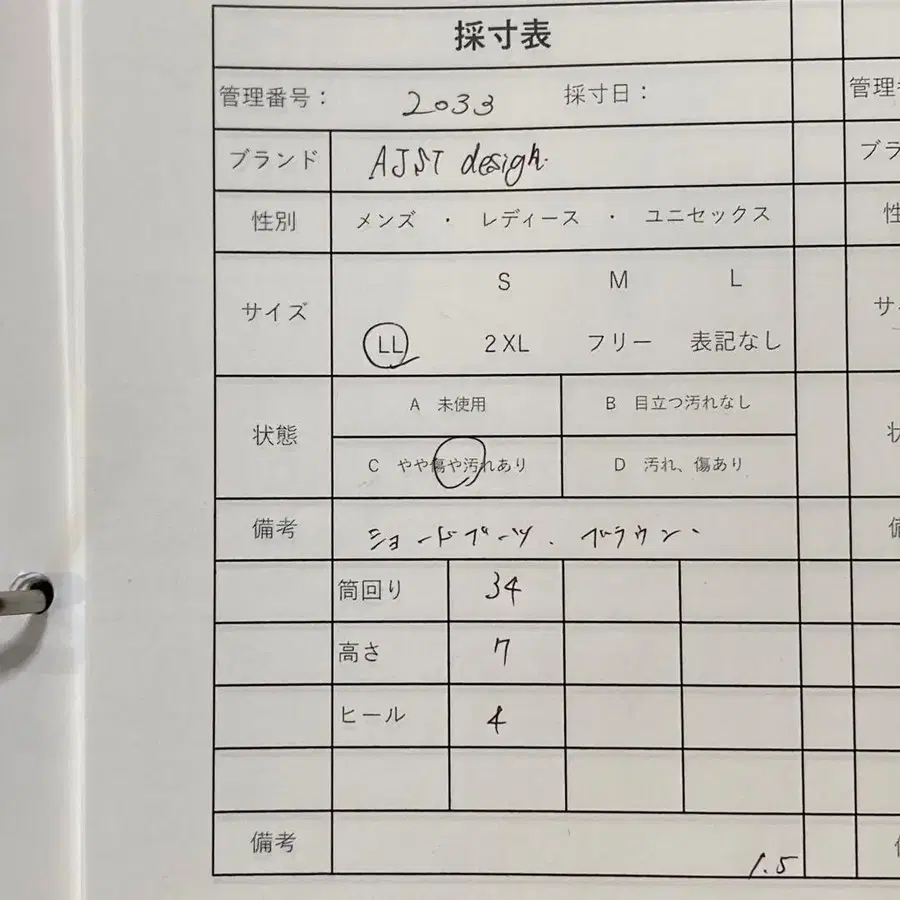 採寸表
管理番号： 2033 採寸日：
ブランド AJST design.
性別 メンズ ・ レディース ・ ユニセックス
S M L
サイズ
LL 2XL フリー 表記なし
A 未使用 B 目立つ汚れなし
状態
C やや傷や汚れあり D 汚れ、傷あり
備考 ショードブーツ. ブラウン.
筒回り 34
高さ 7
ヒール 4
備考
1.5
管理
ブラ
性
サ